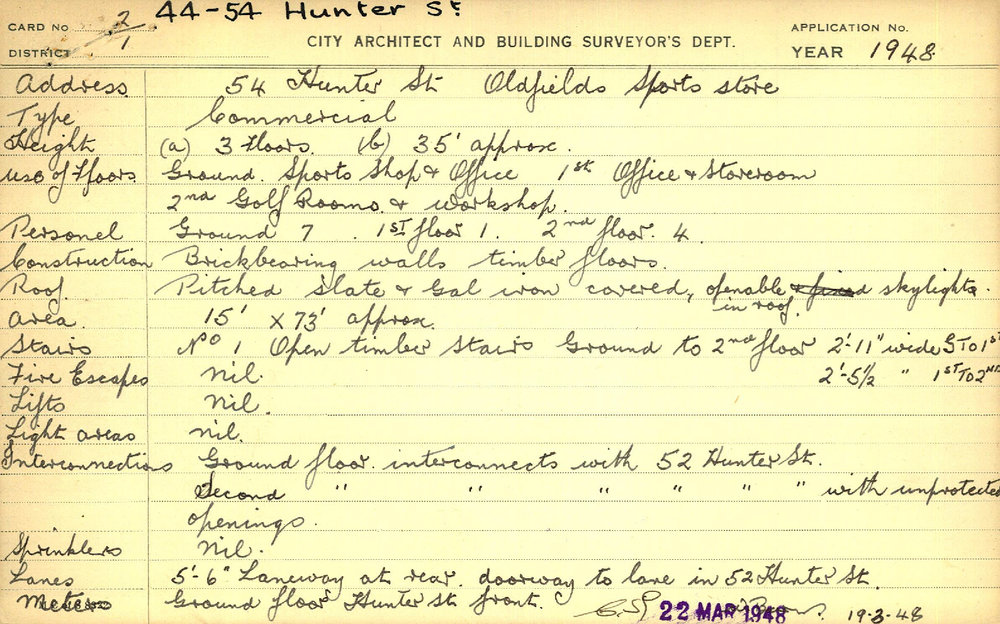 44-54 Hunter St.
CARD No 2/1
DISTRICT
CITY ARCHITECT AND BUILDING SURVEYOR'S DEPT.
APPLICATION No.
YEAR 1948
Address 54 Hunter St Oldfields Sports store
Type Commercial
Height (a) 3 Floors. (b) 35' approx.
use of Floors. Ground. Sports Shop & Office 1st Office & Storeroom
2nd Golf Rooms & workshop.
Personel Ground 7. 1ST floor 1. 2nd floor. 4.
Construction Brickbearing walls timber floors.
Roof. Pitched slate & Gal iron covered, openable & fixed skylights.
in roof.
Area. 15' x 73' approx.
Stairs No 1 Open timber Stairs Ground to 2nd floor 2'-11" wide G TO 1st
Fire Escapes nil. 2'-5½ " 1ST TO 2ND
Lifts nil.
Light areas nil.
Interconnections Ground floor interconnects with 52 Hunter St.
Second " " " " " " with unprotected
openings.
Sprinklers Nil.
Lanes 5'-6" Laneway at rear. doorway to lane in 52 Hunter St.
Meters Ground floor Hunter St front.
22 MAR 1948 19-3-48